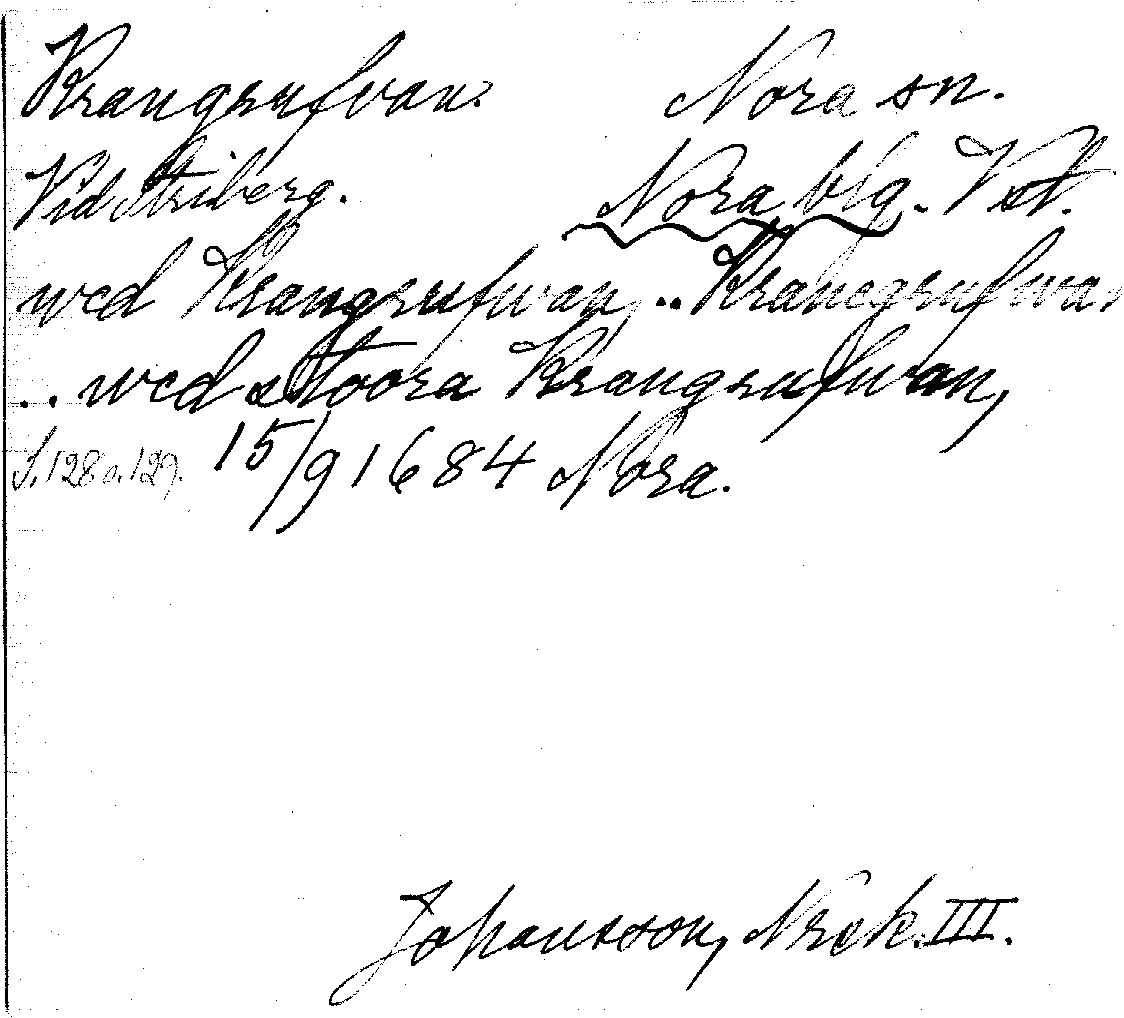 Krangrufvan. Nora sn.
Vid Striberg. Nora blg. Vstl.
wed Krangrufwan, .. Kranegrufwan
.. wed stoora Krangrufwan,
S. 128 o. 129. 15/9 1684 Nora.
Johansson, Nrck. III.